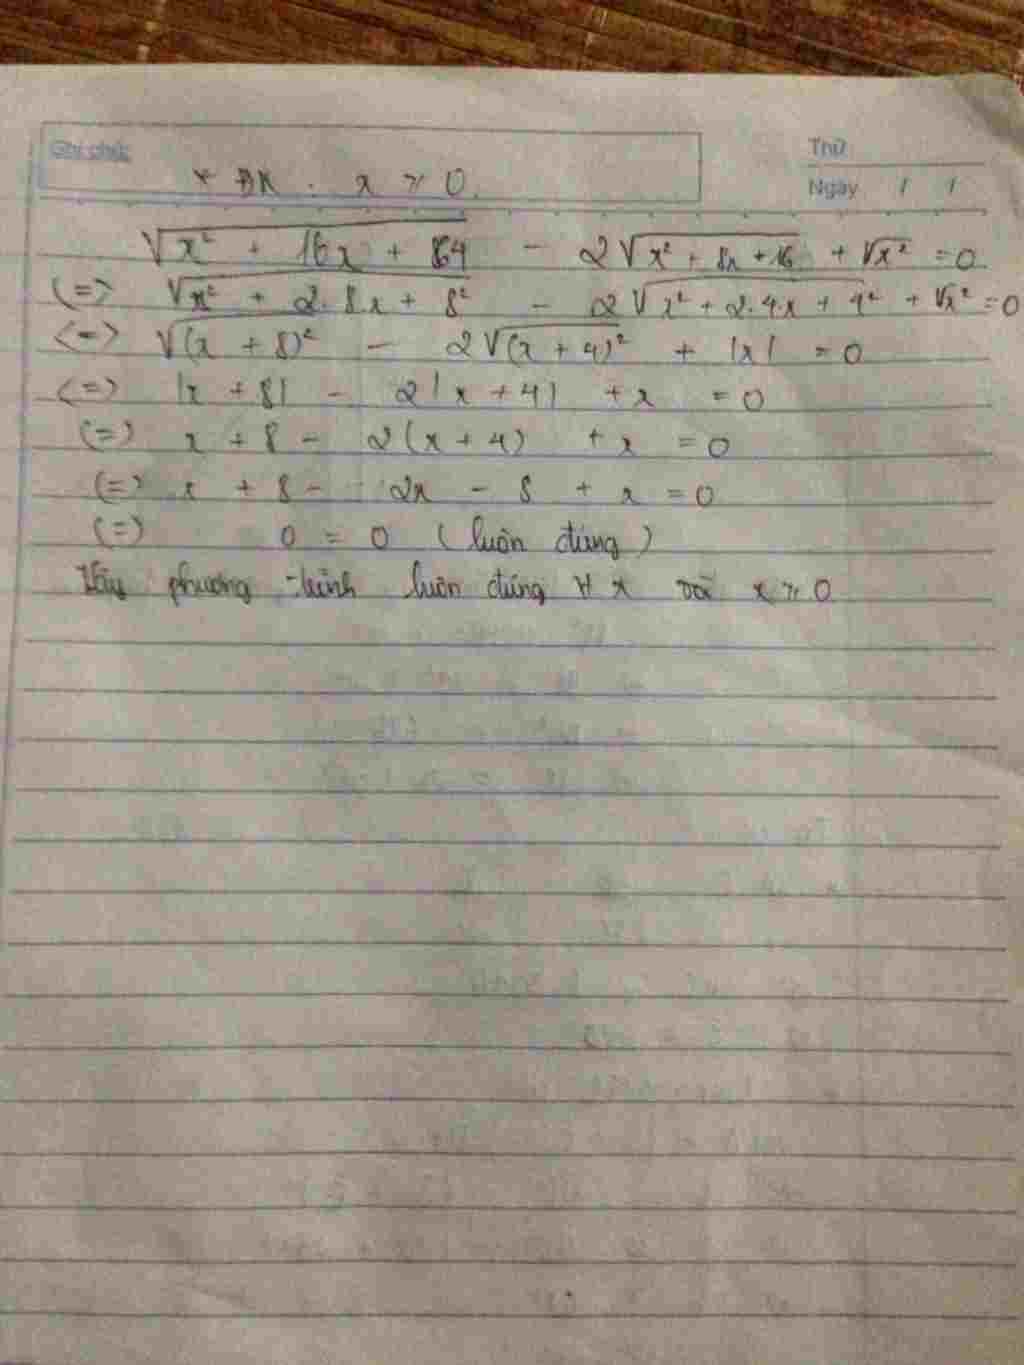 Ghi chú:
Thứ
Ngày / /
* ĐK : x ≥ 0.
√(x² + 16x + 64) - 2√(x² + 8x + 16) + √x² = 0
(=) √(x² + 2.8x + 8²) - 2√(x² + 2.4x + 4²) + √x² = 0
(=) √(x + 8)² - 2√(x + 4)² + |x| = 0
(=) |x + 8| - 2|x + 4| + x = 0
(=) x + 8 - 2(x + 4) + x = 0
(=) x + 8 - 2x - 8 + x = 0
(=) 0 = 0 (luôn đúng)
Vậy phương trình luôn đúng ∀ x với x ≥ 0